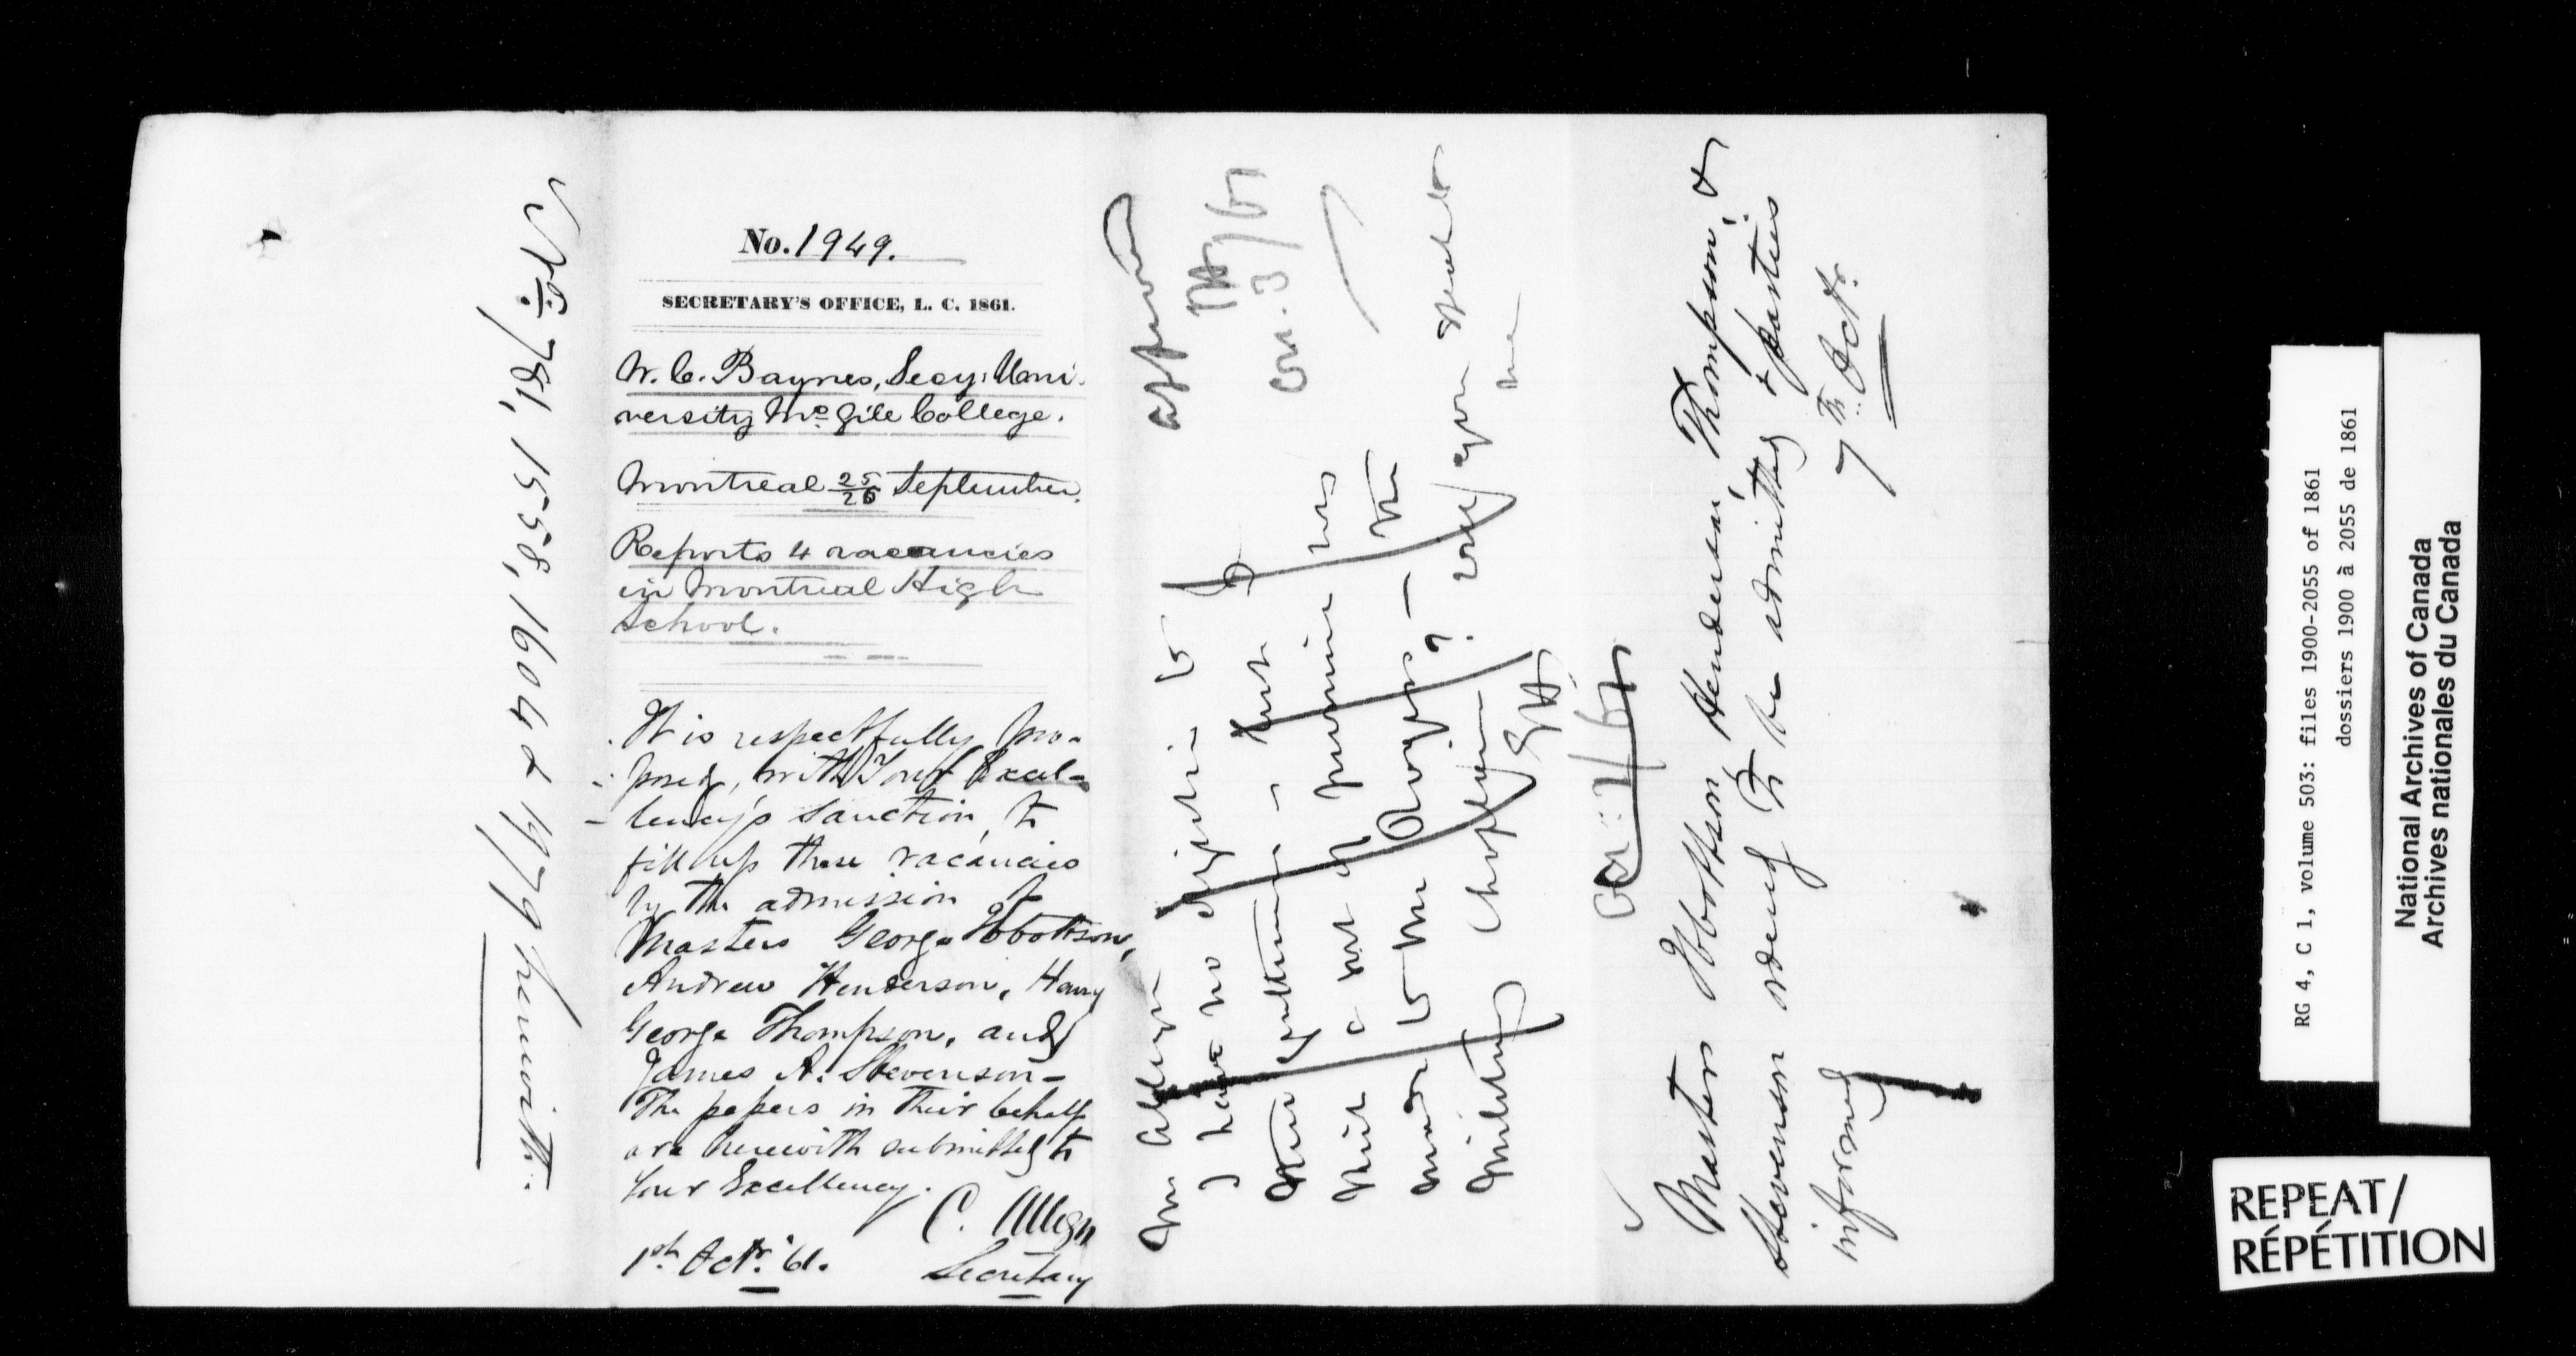 Nos. 781, 1558, 1604 & 1979 herewith.
No. 1949.
SECRETARY'S OFFICE, L. C. 1861.
W. C. Baynes, Secy: Uni-
versity McGill College.
Montreal 25/26 September.
Reports 4 vacancies
in Montreal High
School.
It is respectfully pro-
posed, with Your Excel-
lency's sanction, to
fill up these vacancies
by the admission of
Masters George Ibbottson,
Andrew Henderson, Harry
George Thompson, and
James A. Stevenson -
The papers in their behalf
are herewith submitted to
Your Excellency.
C. Alleyn
Secretary
1st Octr. '61.
Mr Alleyn
I have no objection to
these gentlemen - but
this is not a promise
made to me
approved
Oct. 3/61
Masters Ibbottson Henderson, Thompson, &
Stevenson ordered to be admitted & parties
informed 7th Octr.
RG 4, C 1, volume 503: files 1900-2055 of 1861
dossiers 1900 à 2055 de 1861
National Archives of Canada
Archives nationales du Canada
REPEAT/
RÉPÉTITION